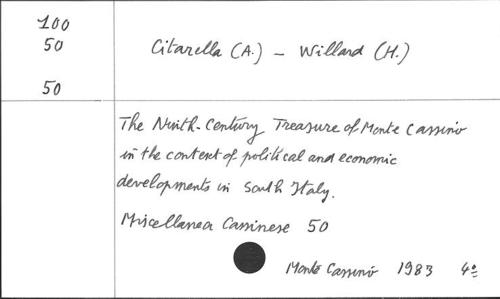 100
50
50
Citarella (A.) - Willard (H.)
The Ninth-Century Treasure of Monte Cassino
in the context of political and economic
developments in South Italy.
Miscellanea Cassinese 50
Monte Cassino 1983 4º